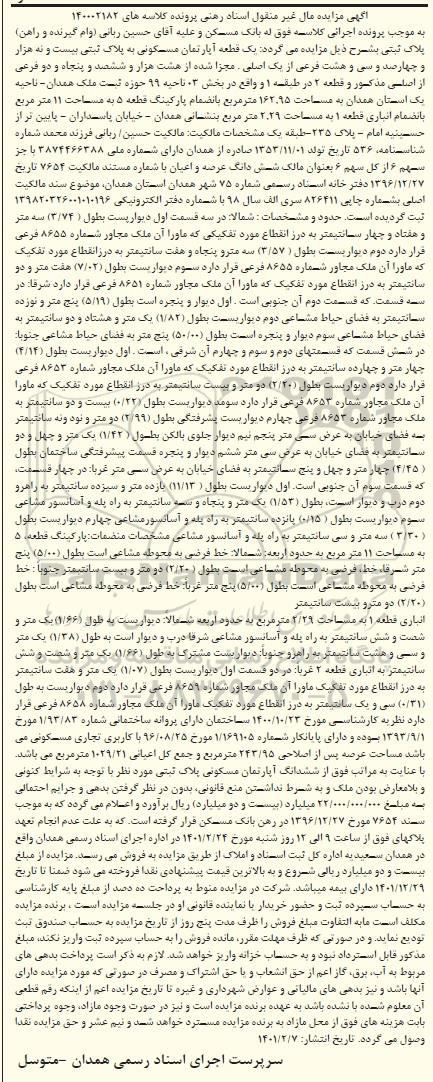 آگهی مزایده مال غیر منقول اسناد رهنی پرونده کلاسه های ۱۴۰۰۰۲۱۸۲
به موجب پرونده اجرائی کلاسه فوق له بانک مسکن و علیه آقای حسین ربانی (وام گیرنده و راهن)
پلاک ثبتی بشرح ذیل مزایده می گردد: یک قطعه آپارتمان مسکونی به پلاک ثبتی بیست و نه هزار
و چهارصد و سی و هشت فرعی از یک اصلی . مجزا شده از هشت هزار و ششصد و پنجاه و دو فرعی
از اصلی مذکور و قطعه ۲ در طبقه ۱ و واقع در بخش ۰۳ ناحیه ۹۹ حوزه ثبت ملک همدان- ناحیه
یک استان همدان به مساحت ۱۶۲.۹۵ مترمربع بانضمام پارکینگ قطعه ۵ به مساحت ۱۱ متر مربع
بانضمام انباری قطعه ۱ به مساحت ۲.۲۹ متر مربع بنشانی همدان - خیابان پاسداران - پایین تر از
حسینیه امام - پلاک ۲۳۵-طبقه یک مشخصات مالکیت: مالکیت حسین/ ربانی فرزند محمد شماره
شناسنامه، ۵۳۶ تاریخ تولد ۱۳۵۳/۱۱/۰۱ صادره از همدان دارای شماره ملی ۳۸۷۴۴۶۶۳۸۸ با جز
سهم ۶ از کل سهم ۶ بعنوان مالک شش دانگ عرصه و اعیان با شماره مستند مالکیت ۷۶۵۴ تاریخ
۱۳۹۶/۱۲/۲۷ دفتر خانه اسناد رسمی شماره ۷۵ شهر همدان استان همدان، موضوع سند مالکیت
اصلی بشماره چاپی ۸۲۶۴۱۱ سری الف سال ۹۸ با شماره دفتر الکترونیکی ۱۳۹۸۲۰۳۲۶۰۰۱۰۱۰۱۹۶
ثبت گردیده است. حدود و مشخصات : شمالا: در سه قسمت اول دیواریست بطول (۳/۷۴) سه متر
و هفتاد و چهار سانتیمتر به درز انقطاع مورد تفکیکی که ماورا آن ملک مجاور شماره ۸۶۵۵ فرعی
قرار دارد دوم دیواریست بطول (۳/۵۷) سه مترو پنجاه و هفت سانتیمتر به درزانقطاع مورد تفکیک
که ماورا آن ملک مجاور شماره ۸۶۵۵ فرعی قرار دارد سوم دیواریست بطول (۷/۰۲) هفت متر و دو
سانتیمتر به درز انقطاع مورد تفکیک که ماورا آن ملک مجاور شماره ۸۶۵۱ فرعی قرار دارد شرقا: در
سه قسمت، که قسمت دوم آن جنوبی است . اول دیوار و پنجره است بطول (۵/۱۹) پنج متر و نوزده
سانتیمتر به فضای حیاط مشاعی دوم دیواریست بطول (۱/۸۲) یک متر و هشتاد و دو سانتیمتر به
فضای حیاط مشاعی سوم دیوار و پنجره است بطول (۵۰/۰۰) پنج متر به فضای حیاط مشاعی جنوبا:
در شش قسمت که قسمتهای دوم و سوم و چهارم آن شرقی ، است . اول دیواریست بطول (۴/۱۴)
چهار متر و چهارده سانتیمتر به درز انقطاع مورد تفکیک که ماورا آن ملک مجاور شماره ۸۶۵۳ فرعی
قرار دارد دوم دیواریست بطول (۲/۲۰) دو متر و بیست سانتیمتر به درز انقطاع مورد تفکیک که ماورا
آن ملک مجاور شماره ۸۶۵۳ فرعی قرار دارد سومد دیواریست بطول (۰/۲۲) بیست و دو سانتیمتر به
ملک مجاور شماره ۸۶۵۳ فرعی چهارم دیواریست پشرفتگی بطول (۲/۹۹) دو متر و نود ونه سانتیمتر
به فضای خیابان به عرض سی متر پنجم نیم دیوار جلوی بالکن بطول ( ۱/۴۲) یک متر و چهل و دو
سانتیمتر به فضای خیابان به عرض سی متر ششم دیوار و پنجره قسمت پیشرفتگی ساختمان بطول
(۴/۴۵) چهار متر و چهل و پنج سانتیمتر به فضای خیابان به عرض سی متر غربا: در چهار قسمت،
که قسمت سوم آن جنوبی است. اول دیواریست بطول (۱۱/۱۳) یازده متر و سیزده سانتیمتر به راهرو
دوم درب و دیوار است، بطول (۱/۵۳) یک متر و پنجاه و سه سانتیمتر به راه پله و آسانسور مشاعی
سوم دیواریست بطول ( ۰/۱۵) پانزده سانتیمتر به راه پله و آسانسورمشاعی چهارم دیواریست بطول
(۳/۳۰) سه متر و سی سانتیمتر به راه پله و آسانسور مشاعی مشخصات منضمات:پارکینگ قطعه، ۵
به مساحت ۱۱ متر مربع به حدود اربعه: شمالا: خط فرضی به محوطه مشاعی است بطول (۵/۰۰) پنج
متر شرقا: خط، فرضی به محوطه مشاعی است بطول (۲/۲۰) دو متر و بیست سانتیمتر جنوبا : خط
فرضی به محوطه مشاعی است بطول (۵/۰۰)پنج متر غربا: خط فرضی به محوطه مشاعی است بطول
(۲/۲۰) دو مترو بیست سانتیمتر
انباری قطعه ۱ به مساحت ۲/۲۹ مترمربع به حدود اربعه شمالا: دیواریست به طول (۱/۶۶) یک متر و
شصت و شش سانتیمتر به راه پله و آسانسور مشاعی شرقا درب و دیوار است به طول (۱/۳۸) یک متر
و سی و هشت سانتیمتر به راهرو جنوبا: دیواریست مشترک به طول (۱/۶۶) یک متر و شصت و شش
سانتیمتر به انباری قطعه ۲ غربا: در دو قسمت اول دیواریست بطول (۱/۰۷) یک متر و هفت سانتیمتر
به درز انقطاع مورد تفکیک ماورا آن ملک مجاور شماره ۸۶۵۹ فرعی قرار دارد دوم دیواریست به طول
(۰/۳۱) سی و یک سانتیمتر به درز انقطاع مورد تفکیک ماورا آن ملک مجاور شماره ۸۶۵۸ فرعی قرار
دارد نظر به کارشناسی مورخ ۱۴۰۰/۱۰/۲۳ ساختمان دارای پروانه ساختمانی شماره ۱/۹۳/۸۳ مورخ
۱۳۹۳/۹/۱ بوده و دارای پایانکار شماره ۱/۱۶۹۱۰۵ مورخ ۹۶/۰۸/۲۵ با کاربری تجاری مسکونی می
باشد مساحت عرصه پس از اصلاحی ۲۴۳/۹۵ مترمربع و جمع کل اعیانی ۱۰۲۹/۲۱ مترمربع می باشد.
با عنایت به مراتب فوق از ششدانگ آپارتمان مسکونی پلاک ثبتی مورد نظر با توجه به شرایط کنونی
و بلامعارض بودن ملک و به شرط نداشتن منع قانونی، بدون در نظر گرفتن بدهی و جرایم احتمالی
به مبلغ ۲۲/۰۰۰/۰۰۰/۰۰۰ میلیارد (بیست و دو میلیارد) ریال برآورد و اعلام می گردد که به موجب
سند ۷۶۵۴ مورخ ۱۳۹۶/۱۲/۲۷ در رهن بانک مسکن قرار گرفته است. که به علت عدم انجام تعهد
پلاکهای فوق از ساعت ۹ الی ۱۲ روز شنبه مورخ ۱۴۰۱/۲/۲۴ در اداره اجرای اسناد رسمی همدان واقع
در همدان سعیدیه اداره کل ثبت اسناد و املاک از طریق مزایده به فروش می رسد. مزایده از مبلغ
بیست و دو میلیارد ریالی شروع و به بالاترین قیمت پیشنهادی نقدا فروخته می شود ضمنا تا تاریخ
۱۴۰۱/۱۲/۲۹ دارای بیمه میباشد. شرکت در مزایده منوط به پرداخت ده دصد از مبلغ پایه کارشناسی
به حساب سپرده ثبت و حضور خریدار یا نماینده قانونی او در جلسه مزایده است . برنده مزایده
مکلف است مابه التفاوت مبلغ فروش را ظرف مدت پنج روز از تاریخ مزایده به حساب صندوق ثبت
تودیع نماید. و در صورتی که ظرف مهلت مقرر، مانده فروش را به حساب سپرده ثبت واریز نکند، مبلغ
مذکور قابل استرداد نبود و به حساب خزانه واریز خواهد شد. لازم به ذکر است پرداخت بدهی های
مربوط به آب، برق، گاز اعم از حق انشعاب و یا حق اشتراک و مصرف در صورتی که مورد مزایده دارای
آنها باشد و نیز بدهی های مالیاتی و عوارض شهرداری و غیره تا تاریخ مزایده اعم از اینکه رقم قطعی
آن معلوم شده یا نشده باشد به عهده برنده مزایده است و نیز در صورت وجود مازاد، وجوه پرداختی
بابت هزینه های فوق از محل مازاد به برنده مزایده مسترد خواهد شد و نیم عشر و حق مزایده نقدا
وصول می گردد. تاریخ انتشار: ۱۴۰۱/۲/۷
سرپرست اجرای اسناد رسمی همدان -متوسل